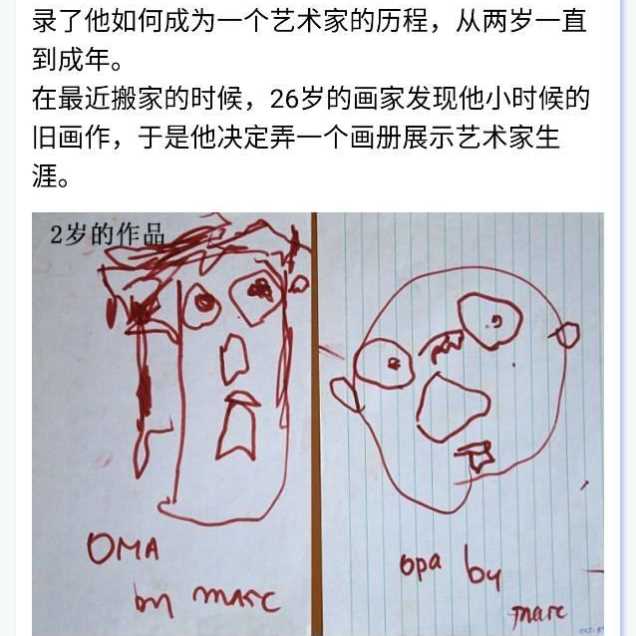 录了他如何成为一个艺术家的历程，从两岁一直
到成年。
在最近搬家的时候，26岁的画家发现他小时候的
旧画作，于是他决定弄一个画册展示艺术家生
涯。
2岁的作品
OMA
by marc
opa by
marc